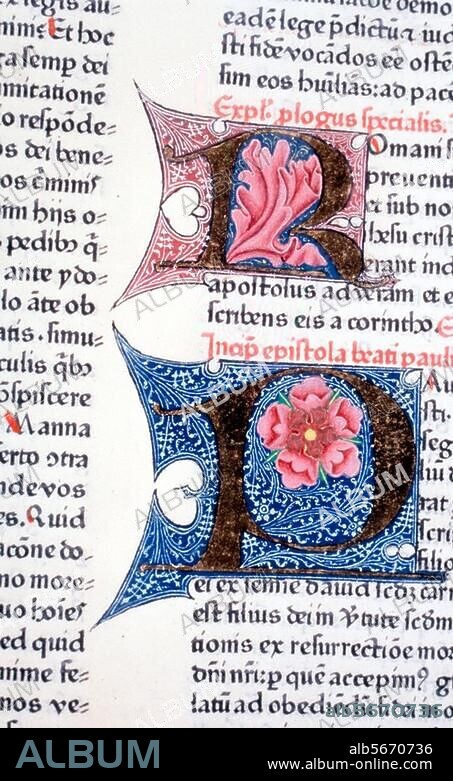 legis au⸗
nime. Et hoc
ga semp dei
nmitatione
io respōde⸗
os dei bene⸗
os cminis
mi hijs o⸗
pedibꝰ q̄⸗
ante ydo⸗
lo āte ob
atis. simu⸗
culis
spiscere
Manna
erto otra
ndevos
es. Quid
do⸗
no more⸗
uo hoies
ed quid
nime fe⸗
nos ve⸗
eadē lege pdictur iud
sti fidē vocādos ee ostē
sim eos huilias: ad pacē
Expl. plogus specialis.
Romani s
preuent
et sub no
ihesu crist
erant ind
apostolus ad veram et e
scribens eis a corintho.
Incip epistola beati pauli
Pau
sti.
seg
rat
scri
filio
ei ex semine dauid scdm carn
est filius dei in v̄tute scdm
tionis ex resurrectiōe mo
dn̄i nr̄i: p quē accepim9 g
latū ad obediendū fidei
ALBUM
alb5670736
www.album-online.com